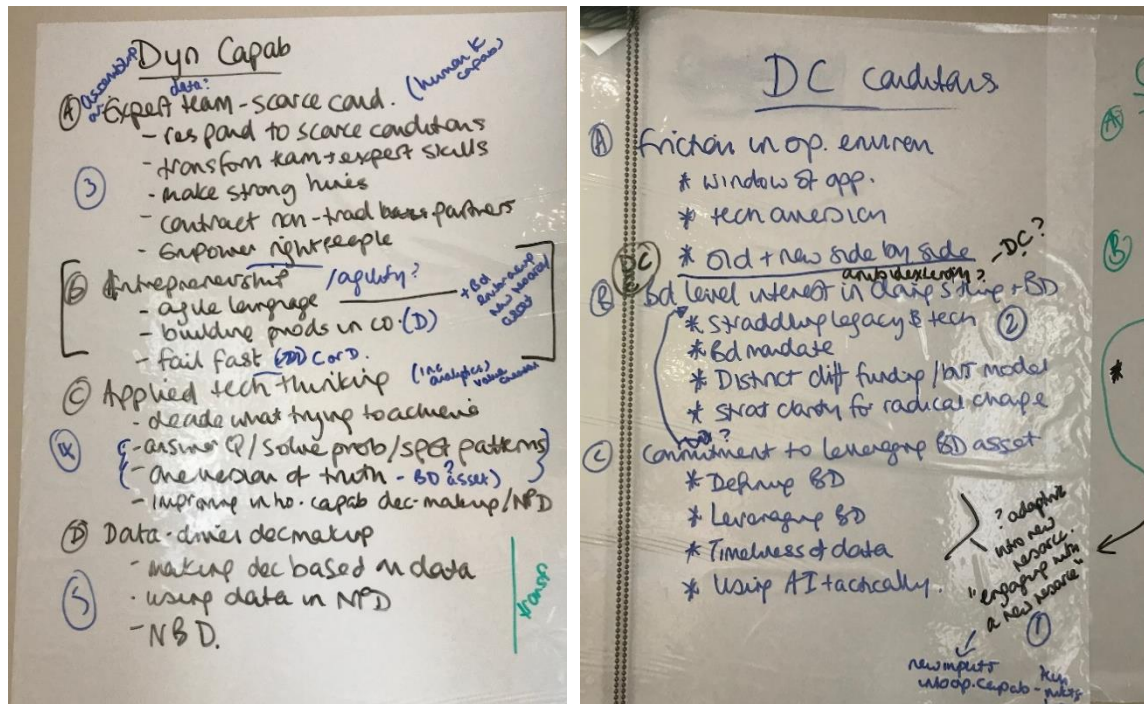 Dyn Capab
data:
(A) Expert team - scarce cond. (human k capab)
- respond to scarce conditions
- transform team + expert skills
(3)
- make strong hires
- contract non-trad partners
- Empower right people
Entrepreneurship /agility?
- agile language
- building prods in co (D)
- fail fast C or D.
+ Bd
new
(C) Applied tech thinking (inc analytics) value creation
- decade what trying to achieve
(4)
- answer Q/solve prob/spot patterns
- one version of truth - BD asset?
- improving in ho. capab dec-makup/NPD
(D) Data-driven decmakup
- making dec based on data
(5)
- using data in NPD
- NBD.
transf
DC conditions
(A) friction in op. environ
* window of opp.
* tech aversion
* old + new side by side - DC?
DC
ambidexterity?
(B) Bd level interest in doing sthing + BD
* Straddling legacy & tech (2)
* Bd mandate
* Distinct diff funding / bus model
* Strat clarity for radical change
?
(C) Commitment to leveraging BD asset
* Defining BD
* Leveraging BD
* Timeliness of data
* Using AI tactically.
? adaptive
intro new
resource.
"engaging with
a new resource"
(1)
new inputs
into op. capab -
A
B
*